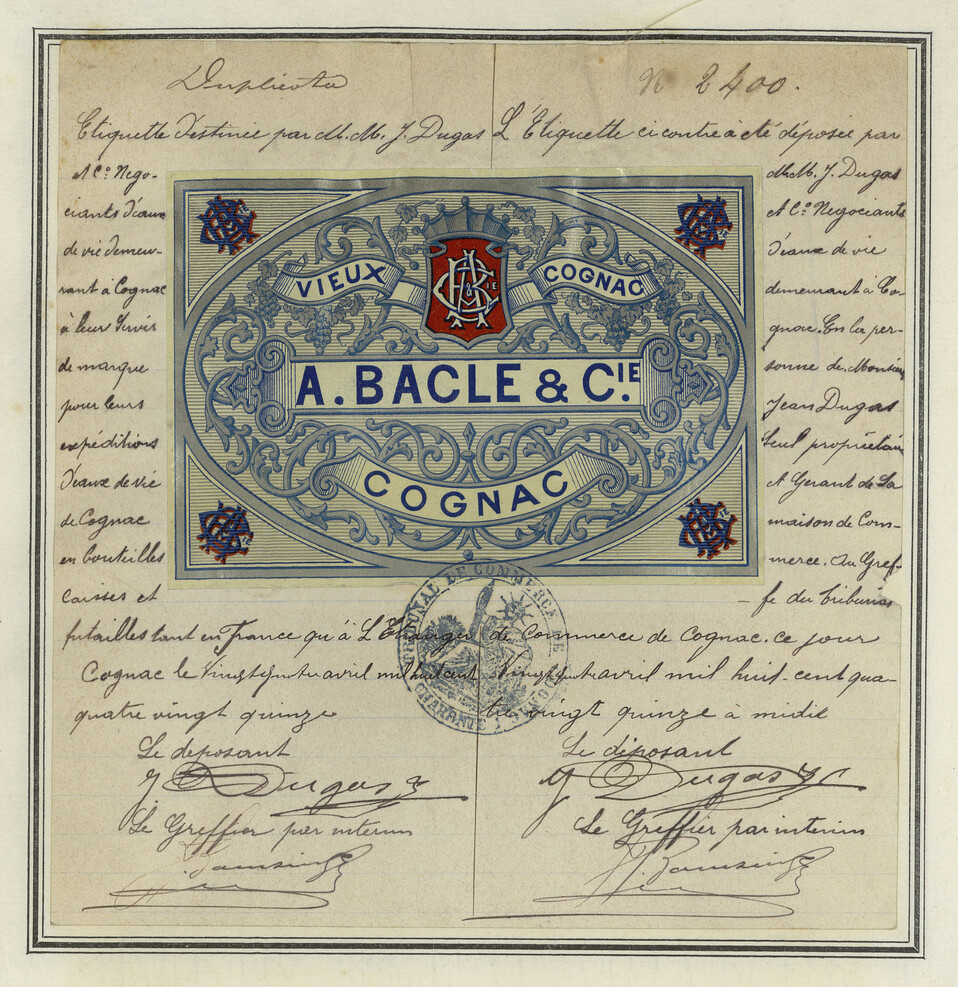 Duplicata
N 2400.
Etiquette Déstinée par M.M. J. Dugas
et Cie Nego-
ciants d'eaux
de vie demeu-
rant à Cognac
à leur Servir
de marque
pour leurs
expéditions
d'eaux de vie
de Cognac
en bouteilles
caisses et
futailles tant en France qu'à L'Etranger
Cognac le Vingt quatre avril mil huit cent
quatre vingt quinze
Le deposant
J Dugas
Le Greffier par interim
L'Etiquette ci contre à été déposée par
M.M. J. Dugas
et Cie Negociants
d'eaux de vie
demeurant à Co-
gnac. En la per-
sonne de Monsieur
Jean Dugas
Seul propriétaire
et Gerant de La
maison de Com-
merce. Au Gref-
fe du tribunal
de Commerce de Cognac. ce jour
Vingt quatre avril mil huit-cent qua-
tre vingt quinze à midi
Le déposant
J Dugas
Le Greffier par interim
VIEUX COGNAC
A. BACLE & CIE
COGNAC
TRIBUNAL DE COMMERCE DE
CHARENTE